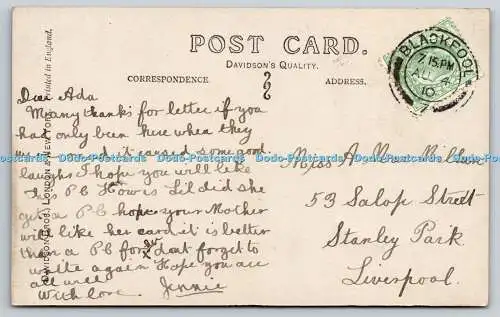 POST CARD.
DAVIDSON'S QUALITY.
CORRESPONDENCE ADDRESS.
BLACKPOOL
7.15 PM
AU
10
DAVIDSON BROS. LONDON & NEW YORK. Printed in England.
Dear Ada
Many thanks for letter if you
had only been here when they
it caused some good
laughs I hope you will like
this PC How is Lil did she
get a PC hope your Mother
will like her card it is better
than a PC for dont forget to
write again Hope you are
all well
With love. Jennie
Miss A
53 Salop Street
Stanley Park
Liverpool.
Postcards-Download